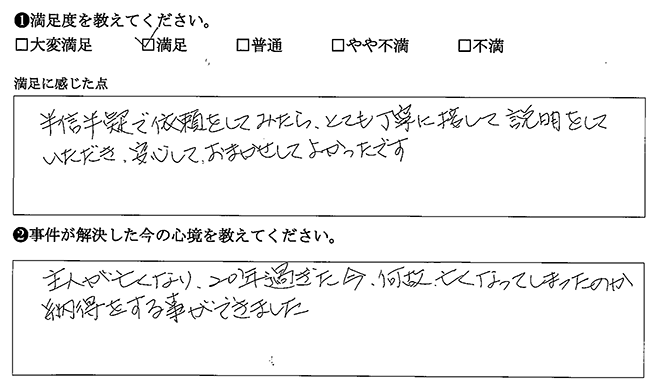 ❶満足度を教えてください。
□大変満足 ☑満足 □普通 □やや不満 □不満
満足に感じた点
半信半疑で依頼をしてみたら、とても丁寧に接して説明をして
いただき、安心して、おまかせしてよかったです
❷事件が解決した今の心境を教えてください。
主人が亡くなり、20年過ぎた今、何故、亡くなってしまったのか
納得をする事ができました